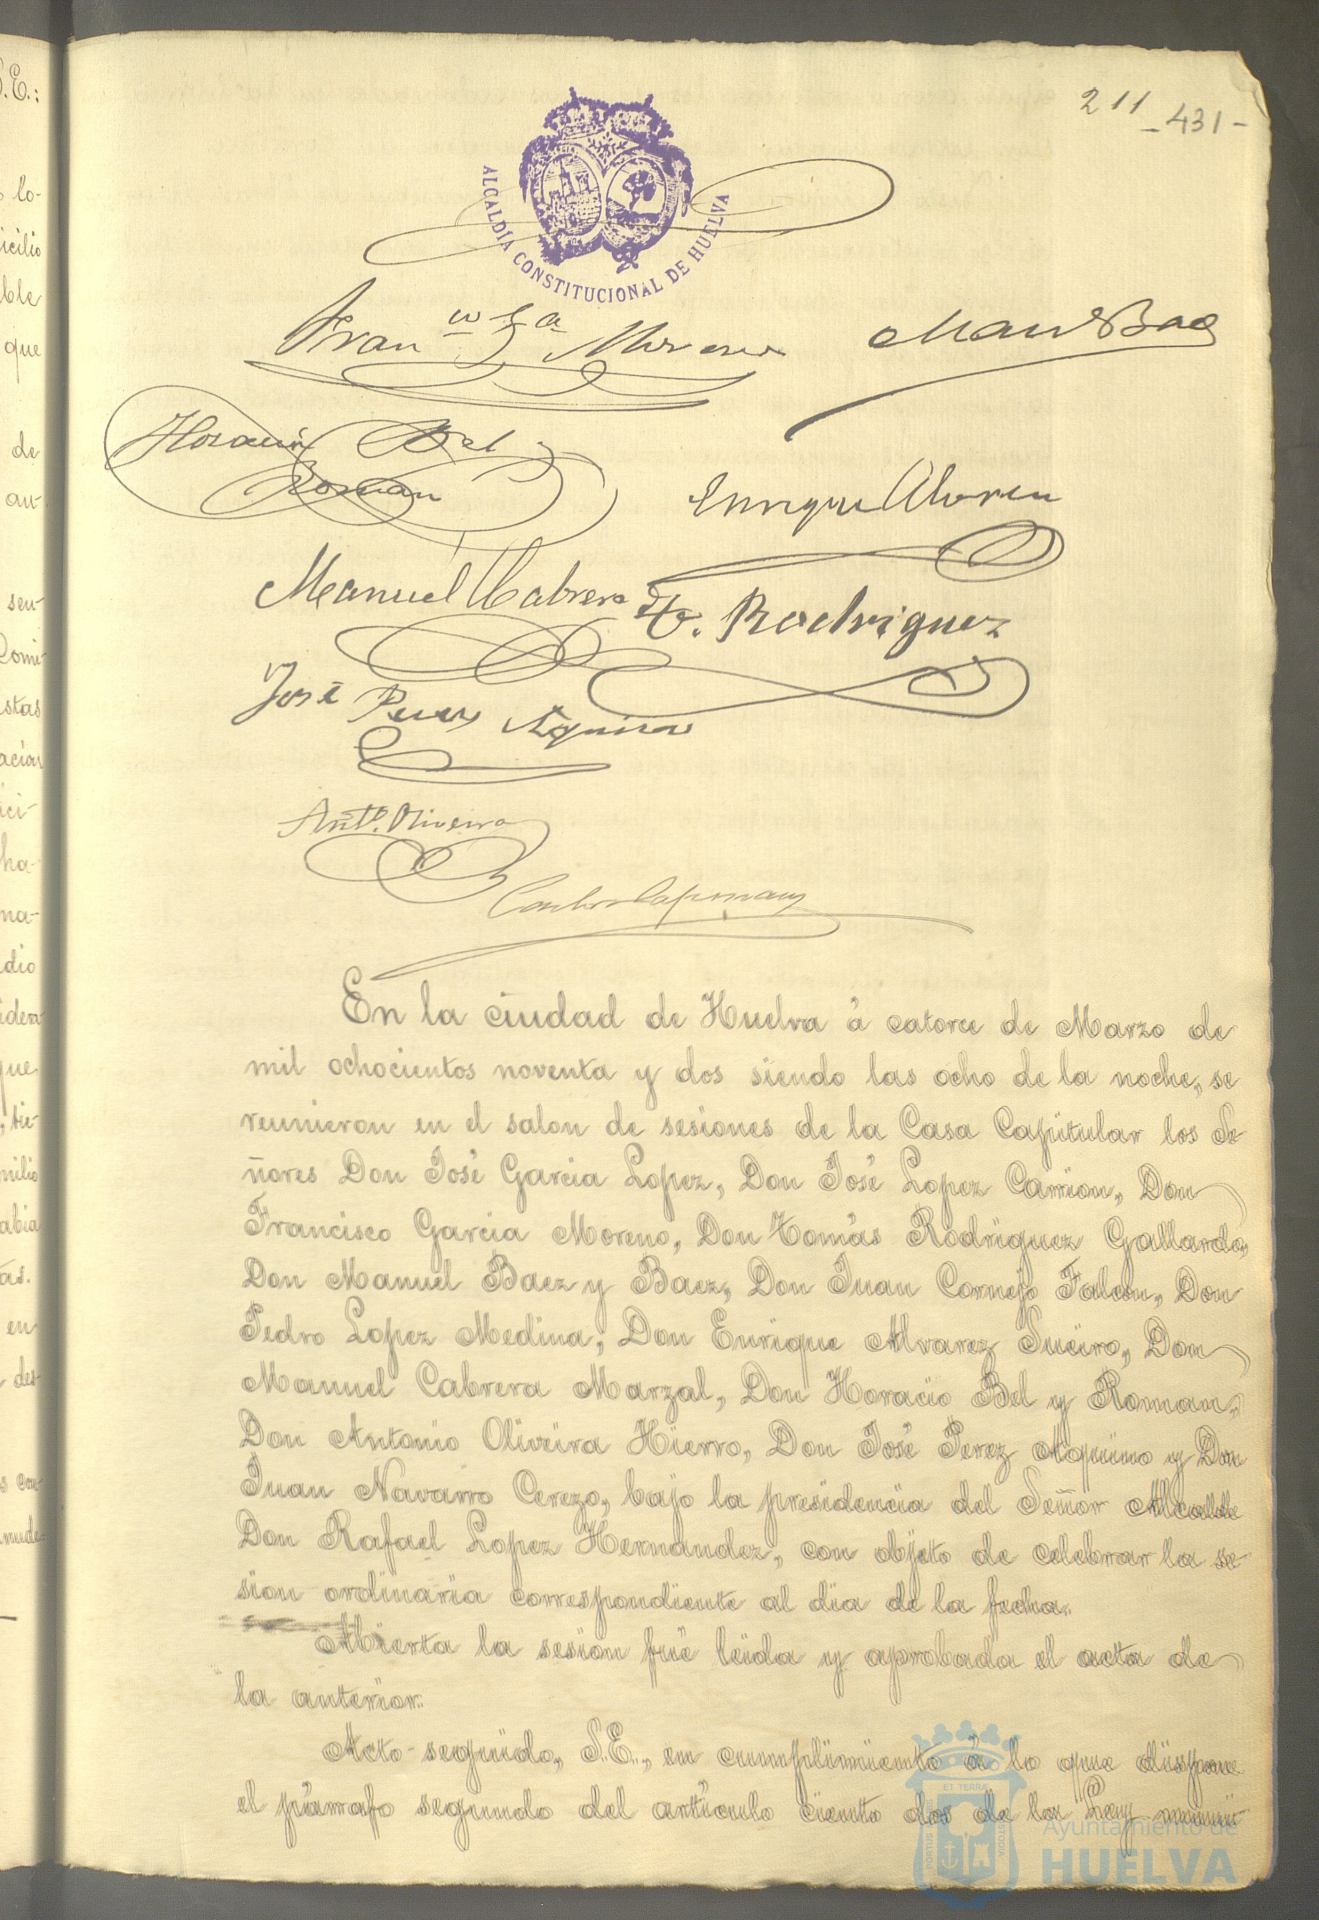 211
-431-
ALCALDÍA CONSTITUCIONAL DE HUELVA
Fran^co G^a Moreno
Man^l Baez
Horacio Bel
Roman
Enrique Alvarez
Manuel Cabrera
T. Rodriguez
José Perez Aquino
Ant^o. Oliveira
En la ciudad de Huelva á catorce de Marzo de
mil ochocientos noventa y dos siendo las ocho de la noche, se
reunieron en el salon de sesiones de la Casa Capitular los Se-
ñores Don José Garcia Lopez, Don José Lopez Carrion, Don
Francisco Garcia Moreno, Don Tomás Rodriguez Gallardo,
Don Manuel Baez y Baez, Don Juan Cornejo Falcon, Don
Pedro Lopez Medina, Don Enrique Alvarez Sueiro, Don
Manuel Cabrera Marzal, Don Horacio Bel y Roman,
Don Antonio Oliveira Hierro, Don José Perez Aquino y Don
Juan Navarro Cerezo, bajo la presidencia del Señor Alcalde
Don Rafael Lopez Hernandez, con objeto de celebrar la se-
sion ordinaria correspondiente al dia de la fecha.
Abierta la sesion fué leida y aprobada el acta de
la anterior.
Acto seguido, S.E., en cumplimiento á lo que dispone
el párrafo segundo del artículo ciento dos de la Ley munici-
PORTUS MARIS ET TERRÆ CUSTODIA
Ayuntamiento de
HUELVA
S.E.:
lo-
icilio
ble
que
de
au-
sen-
Comi-
istas
ici-
ha-
ma-
dio
que
milio
abia
tas.
en
des-